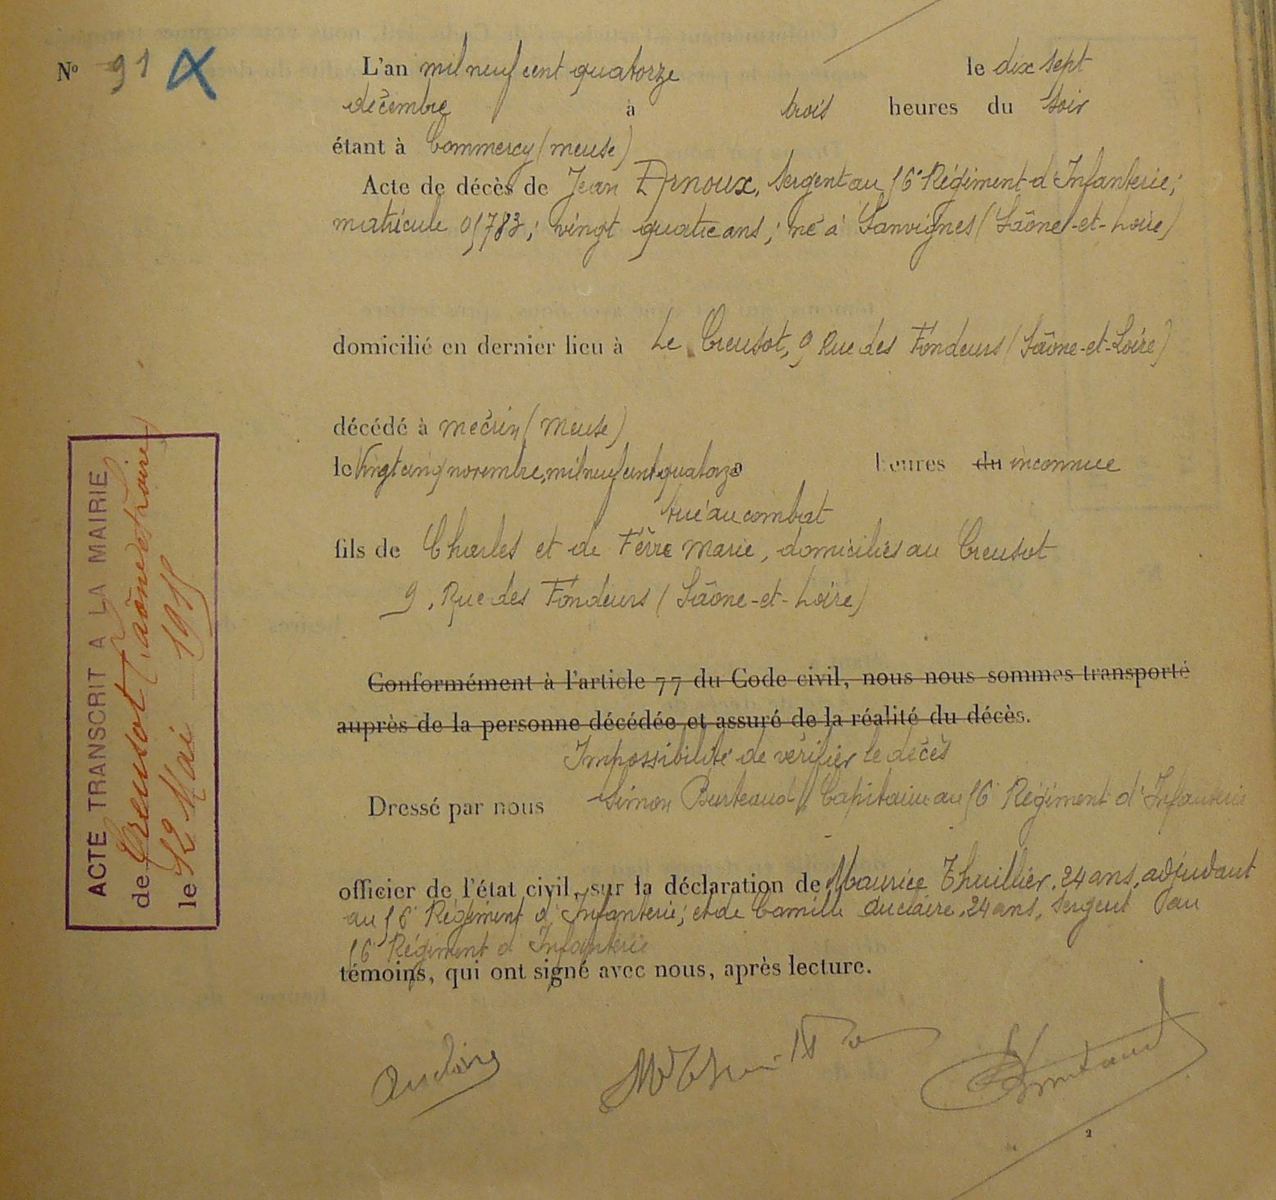 N° 91 X
L'an mil neuf cent quatorze le dix sept
décembre à trois heures du soir
étant à Commercy (Meuse)
Acte de décès de Jean Arnoux, Sergent au 16e Régiment d'Infanterie;
matricule 01783; vingt quatre ans; né à Sanvignes (Saône-et-Loire)
domicilié en dernier lieu à Le Creusot, 9 Rue des Fondeurs (Saône-et-Loire)
décédé à Mécrin (Meuse)
le Vingt cinq novembre, mil neuf cent quatorze heures du inconnue
tué au combat
fils de Charles et de Fèvre Marie, domiciliés au Creusot
9, Rue des Fondeurs (Saône-et-Loire)
Conformément à l'article 77 du Code civil, nous nous sommes transporté
auprès de la personne décédée et assuré de la réalité du décès.
Impossibilité de vérifier le décès
Dressé par nous Simon Capitaine au 16e Régiment d'Infanterie
officier de l'état civil, sur la déclaration de Maurice Thuillier, 24 ans, adjudant
au 16e Régiment d'Infanterie; et de Camille Auclaire, 24 ans, Sergent au
16e Régiment d'Infanterie
témoins, qui ont signé avec nous, après lecture.
Auclaire
2
ACTE TRANSCRIT A LA MAIRIE
de Creusot (Saône et Loire)
le 12 Mai 1915